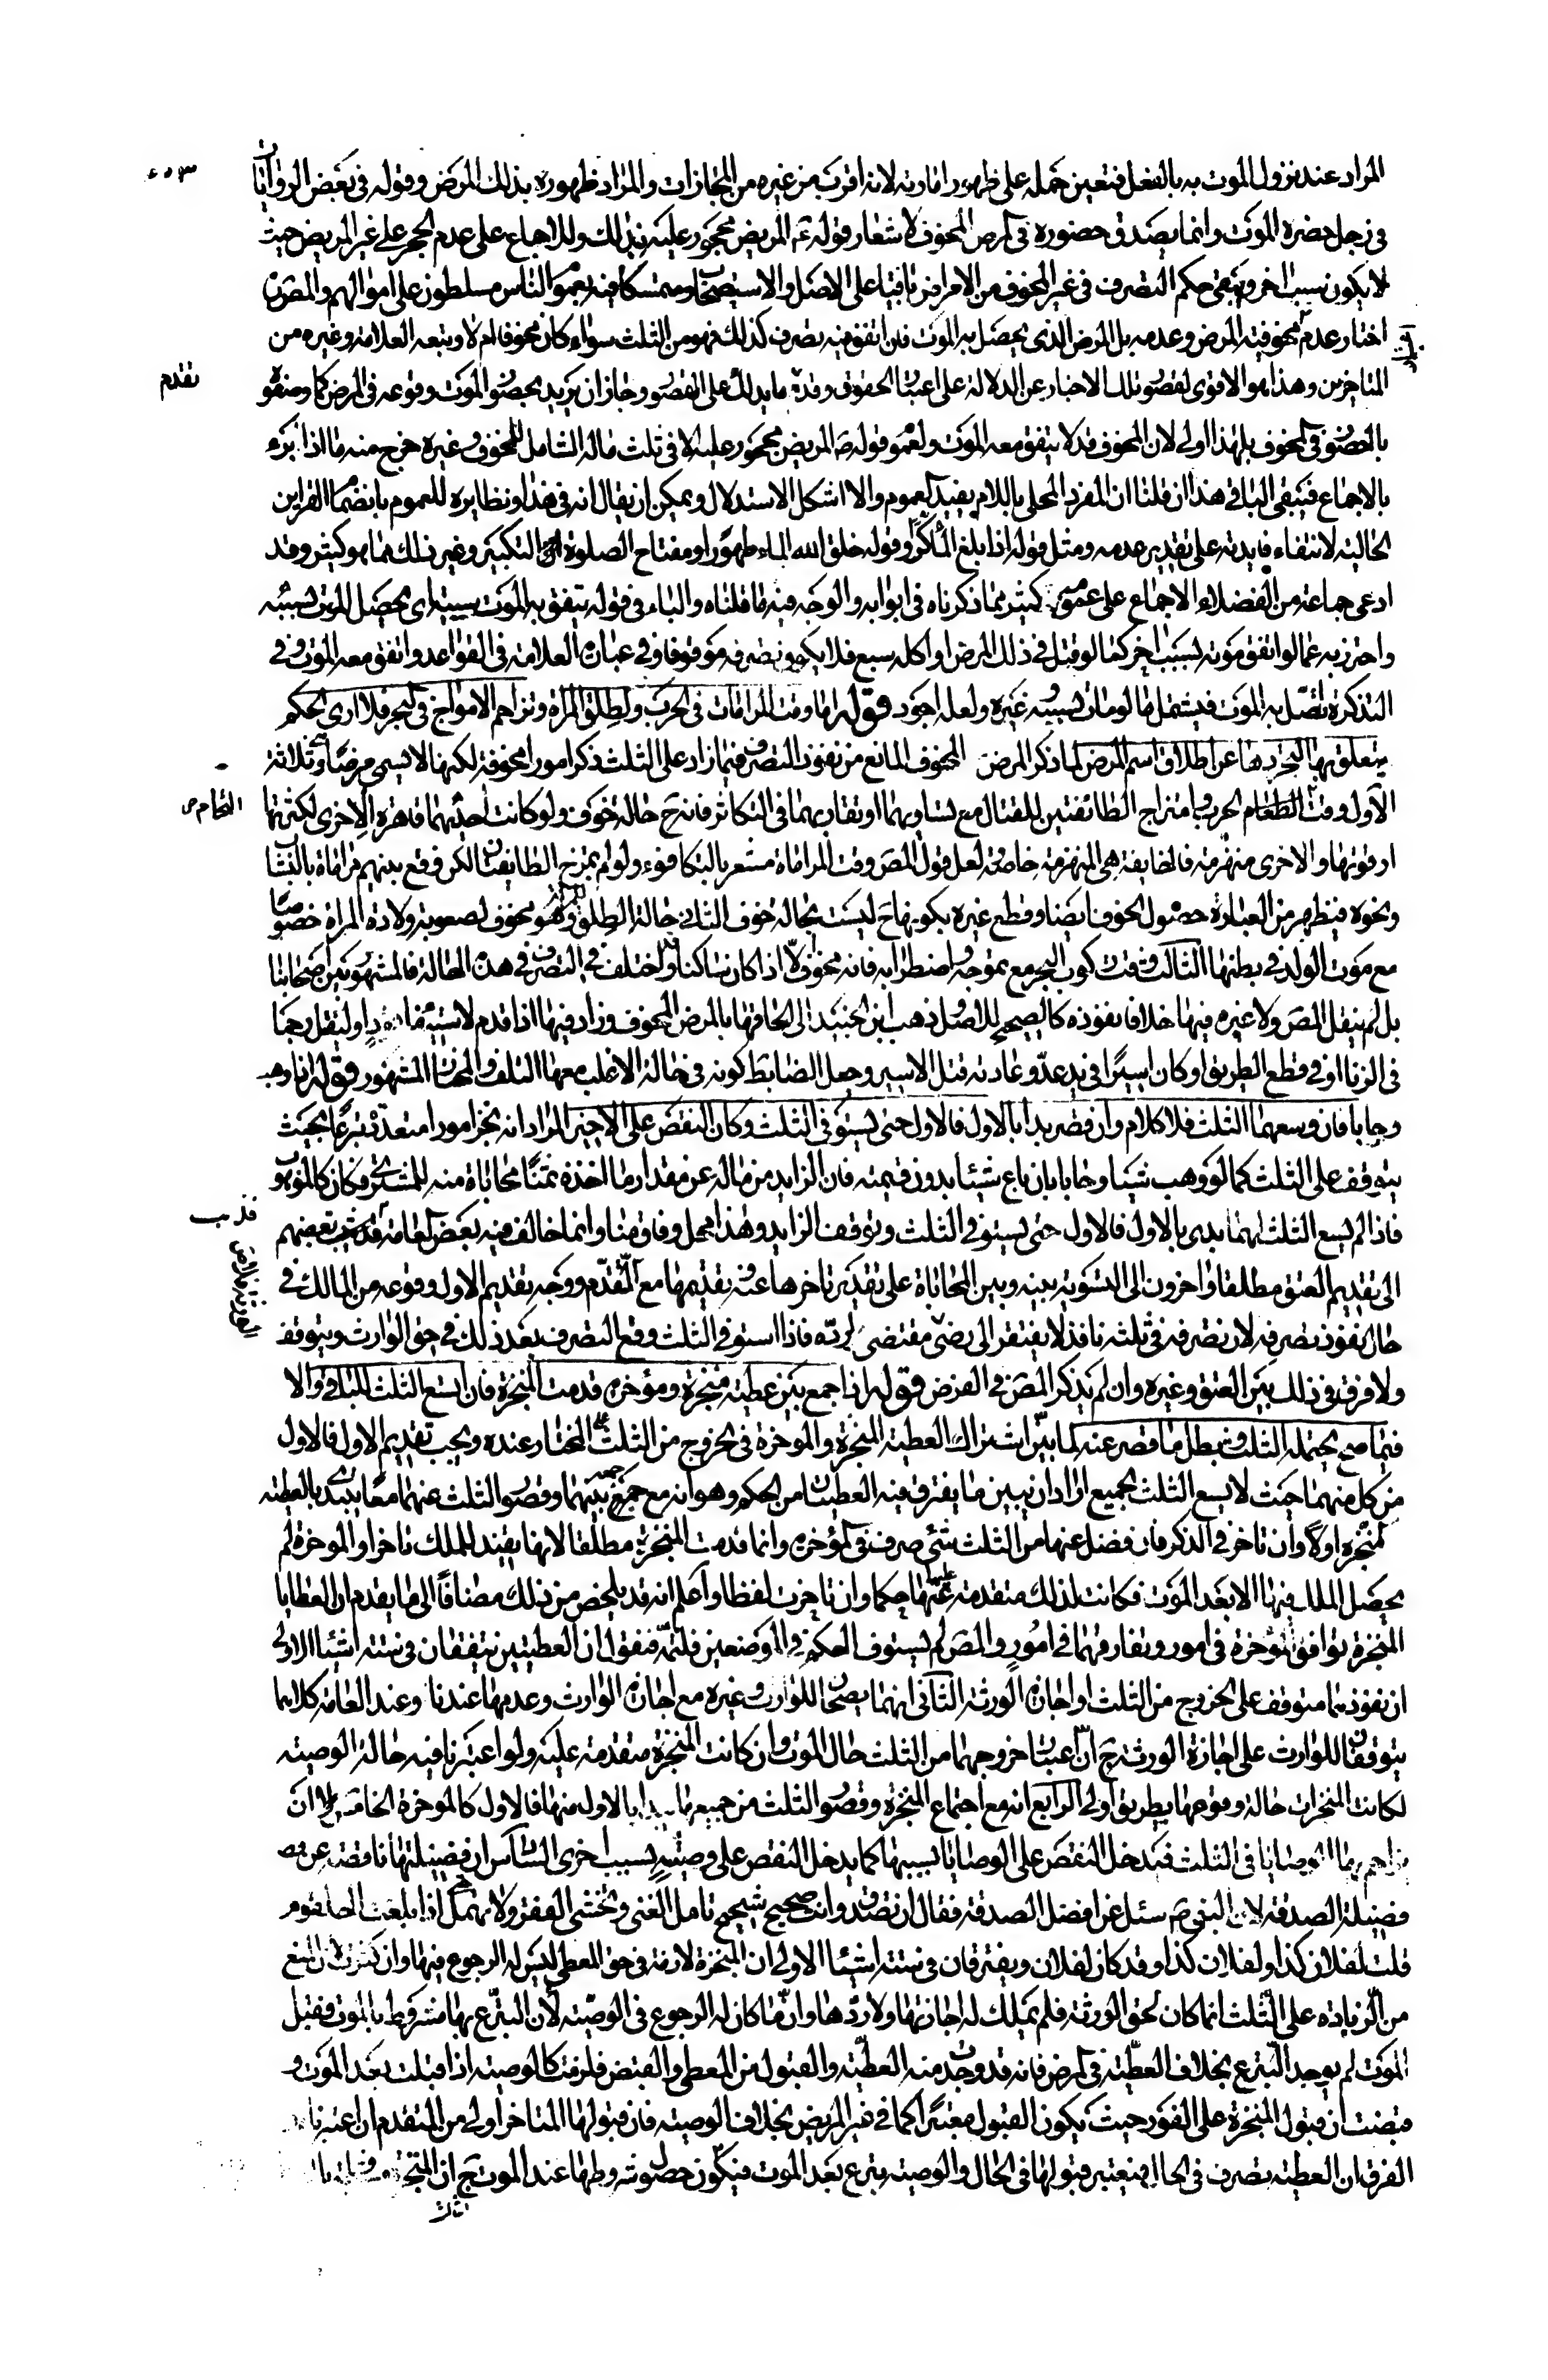 المراد عند نزول الموت به بالفعل فتعين حمله على ظهور اماراته لانه اقرب من غيره من المجازات والمراد ظهوره بذلك المرض وقوله في بعض الروايات
في رجل حضره الموت وانما يصدق حضوره في المرض المخوف لاشعار قوله ع المريض محجور عليه بذلك وللاجماع على عدم الحجر على غير المريض حيث
لا يكون سبب اخر ويبقى حكم التصرف في غير المخوف من الامراض باقيا على الاصل والاستصحاب ومتمسكا فيه بعموم الناس مسلطون على اموالهم والمص
اختار عدم مخوفية المرض وعدمه بل المرض الذي يحصل به الموت فان اتفق فيه تصرف كذلك فهو من الثلث سواء كان مخوفا ام لا وتبعه العلامة وغيره من
المتاخرين وهذا هو الاقوى لقصور تلك الاخبار عن الدلالة على اعتبار الخوف وقد تقدم ما يدلك على القصور وجاز ان يريد بحضور الموت وقوعه في المرض كما وصفوه
بالحضور في المخوف بل هذا اولى لان المخوف قد لا يتفق معه الموت ولعموم قوله ص المريض محجور عليه الا في ثلث ماله الشامل للمخوف وغيره خرج منه ما اذا برء
بالاجماع فيبقى الباقي هذا ان قلنا ان المفرد المحلى باللام يفيد العموم والا اشكل الاستدلال ويمكن ان يقال انه في هذا ونظايره للعموم بانضمام القراين
الحالية لانتفاء فايدته على تقدير عدمه ومثل قوله اذا بلغ الماء كرا وقوله خلق الله الماء طهورا ومفتاح الصلوة التكبير وغير ذلك مما هو كثير وقد
ادعى جماعة من الفضلاء الاجماع على عموم كثير مما ذكرناه في ابوابه والوجه فيه ما قلناه والباء في قوله يتفق به الموت سببية اي يحصل الموت بسببه
واحترز به عما لو اتفق موته بسبب اخر كما لو قتل في ذلك المرض او اكله سبع فلا يكون تصرفه موقوفا وفي عبارة العلامة في القواعد واتفق معه الموت وفي
التذكرة اتصل به الموت فيشمل ما لو مات بسببه وغيره ولعله اجود قوله اما وقت المرامات في الحرب والطلق للمراة وتزاحم الامواج في البحر فلا ارى الحكم
يتعلق بها لتجردها عن اطلاق اسم المرض لما ذكر المرض المخوف المانع من نفوذ التصرف فيما زاد على الثلث ذكر امورا مخوفة لكنها لا تسمى مرضا وهي ثلاثة
الاول وقت التحام الحرب وامتزاج الطائفتين للقتال مع تساويهما او تقاربهما في التكاثر فانه ح حالة خوف ولو كانت احديهما قاهرة الاخرى لكثرتها
او قوتها والاخرى منهزمة فالخايفة هي المنهزمة خاصة لعل قول المص وقت المراماة مشعر بالتكافوء ولو لم يمتزج الطايفتان لكن وقع بينهم مراماة بالنشاب
ونحوه فيظهر من العبارة حصول الخوف ايضا وقطع غيره بكونها ح ليست بحالة خوف الثاني حالة الطلق وهو مخوف لصعوبة ولادة المراة خصوصا
مع موت الولد في بطنها الثالث وقت ركوب البحر مع تموجه واضطرابه فانه مخوف لا اذا كان ساكنا وقد اختلف في التصرف في هذه الحالة فالمشهور بين اصحابنا
بل لم ينقل المص ولا غيره فيها خلافا نفوذه كالصحيح للاصل وذهب ابن الجنيد الى الحاقها بالمرض المخوف وزاد فيها ما اذا قدم لاستيفاء قود او لقتل رجما
في الزنا او في قطع الطريق او كان اسيرا في يد عدو عادته قتل الاسير وجعل الضابط كونه في حالة الاغلب معها التلف والمختار المشهور قوله اذا وهب
وحابا فان وسعهما الثلث فلا كلام وان قصر بدا بالاول فالاول حتى يستوفى الثلث وكان النقص على الاخير المراد انه نجز امورا متعددة تبرعا بحيث
يتوقف على الثلث كما لو وهب شيئا وحابا بان باع شيئا بدون قيمته فان الزايد من ماله عن مقدار ما اخذه ثمنا محاباة منه للمشتري فكان كالموهوب
فاذا لم يسع الثلث لهما بدىء بالاول فالاول حتى يستوفى الثلث وتوقف الزايد وهذا محل وفاق منا وانما خالف فيه بعض العامة فذهب بعضهم
الى تقديم العتق مطلقا واخرون الى التسوية بينه وبين المحاباة على تقدير تاخرها عنه وتقديمها مع التقدم ووجه تقديم الاول وقوعه من المالك في
حال نفوذ تصرفه لان تصرفه في ثلثه نافذ لا يفتقر الى رضى مقتضى لرده فاذا استوفى الثلث وقع التصرف بعد ذلك في حق الوارث ويتوقف
ولا فرق في ذلك بين العتق وغيره وان لم يذكر المص في الفرض قوله اذا جمع بين عطية منجزة ومؤخرة قدمت المنجزة فان اتسع الثلث للباقي والا
فيما صح يحتمله الثلث وبطل ما قصر عنه لما بين اشتراك العطية المنجزة والموخرة في الخروج من الثلث على المختار عنده ويجب تقديم الاول فالاول
من كل منهما حيث لا يسع الثلث الجميع اراد ان يبين ما يفترق فيه العطيتان من الحكم وهو انه مع جمعه بينهما وقصور الثلث عنهما معا يبدء بالعطية
المنجزة اولا وان تاخر في الذكر فان فضل عنها من الثلث شئ صرف في المؤخرة وانما قدمت المنجزة مطلقا لانها يفيد الملك ناجزا والموخرة لم
يحصل الملك فيها الا بعد الموت فكانت لذلك متقدمة عليها حكما وان تاخرت لفظا واعلم انه قد يلخص من ذلك مضافا الى ما يقدم ان العطايا
المنجزة توافق الموخرة في امور وتفارقها في امور والمص لم يستوف الحكم في الموضعين فلنتمه فنقول ان العطيتين يتفقان في ستة اشياء الاول
ان نفوذهما متوقف على الخروج من الثلث او اجازة الورثة الثاني انهما يصحان للوارث وغيره مع اجازة الوارث وعدمها عندنا وعند العامة كلاهما
يتوقفان للوارث على اجازة الورثة ج ان اعتبار خروجهما من الثلث حال الموت وان كانت المنجزة متقدمة عليه ولو اعتبرنا فيه حالة الوصية
لكانت المنجزات حالة وقوعها بطريق اولى الرابع انه مع اجتماع المنجزة وقصور الثلث من جميعها يبدا بالاول منها فالاول كالموخرة الخامس ان
يزاحم بها الوصايا في الثلث فيدخل النقص على الوصايا بسببها كما يدخل النقص على وصية بسبب اخرى السادس ان فضيلتها ناقصة عن
فضيلة الصدقة لان النبي ص سئل عن افضل الصدقة فقال ان تصدق وانت صحيح شحيح تامل الغنى وتخشى الفقر ولا تمهل حتى اذا بلغت الحلقوم
قلت لفلان كذا ولفلان كذا وقد كان لفلان ويفترقان في ستة اشياء الاولى ان المنجزة لازمة في حق المعطي ليس له الرجوع فيها وان كثرت لان المنع
من الزيادة على الثلث انما كان لحق الورثة فلم يملك له اجازتها ولا ردها وانما كان له الرجوع في الوصية لان التبرع بها مشروط بالموت فقبل
الموت لم يوجد التبرع بخلاف العطية في المرض فانه قد وجد منه العطية والقبول من المعطى والقبض فلزمت كالوصية اذا قبلت بعد الموت و
قبضت ان قبول المنجزة على الفور حيث يكون القبول معتبرا كما في غير المريض بخلاف الوصية فان قبولها المتاخر اولى من المتقدم ان اعتبرناه
الفرق ان العطية تصرف في الحال فيعتبر قبولها في الحال والوصية تبرع بعد الموت فيكون حصول شروطها عند الموت ج ان المنجزة
تقدم
التحام ص
فذهب